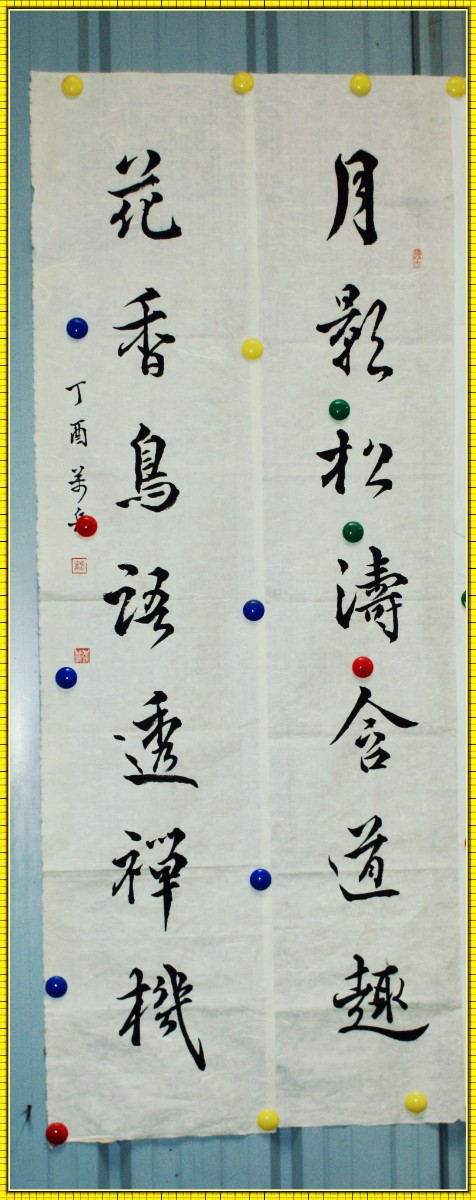 月影松濤含道趣
花香鳥語透禪機
丁酉 萬